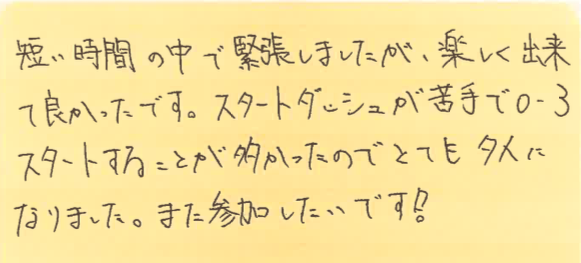 短い時間の中で緊張しましたが、楽しく出来
て良かったです。スタートダッシュが苦手で0-3
スタートすることが多かったのでとても タメに
なりました。また参加したいです!